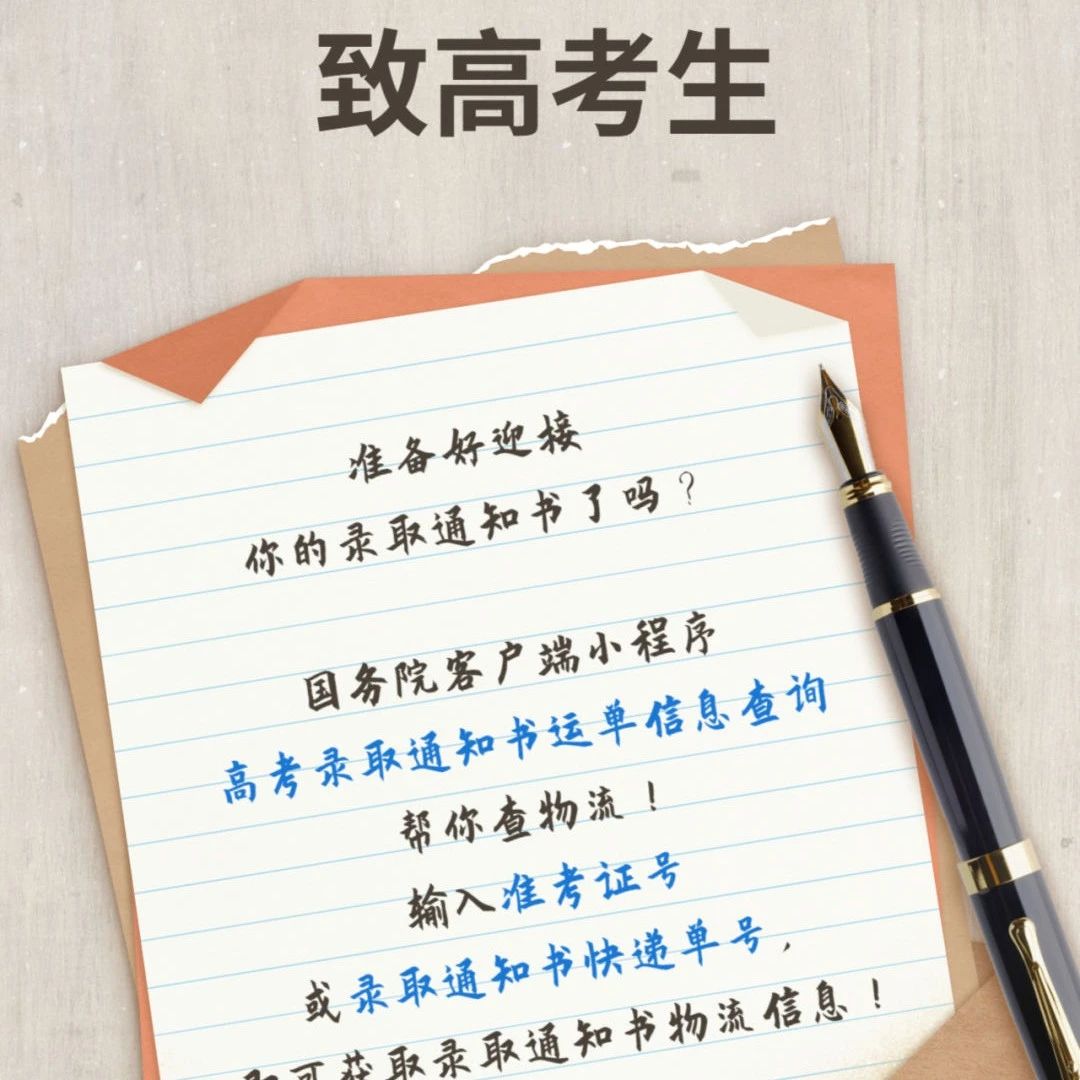 致高考生
准备好迎接
你的录取通知书了吗？
国务院客户端小程序
高考录取通知书运单信息查询
帮你查物流！
输入准考证号
或录取通知书快递单号，
即可获取录取通知书物流信息！